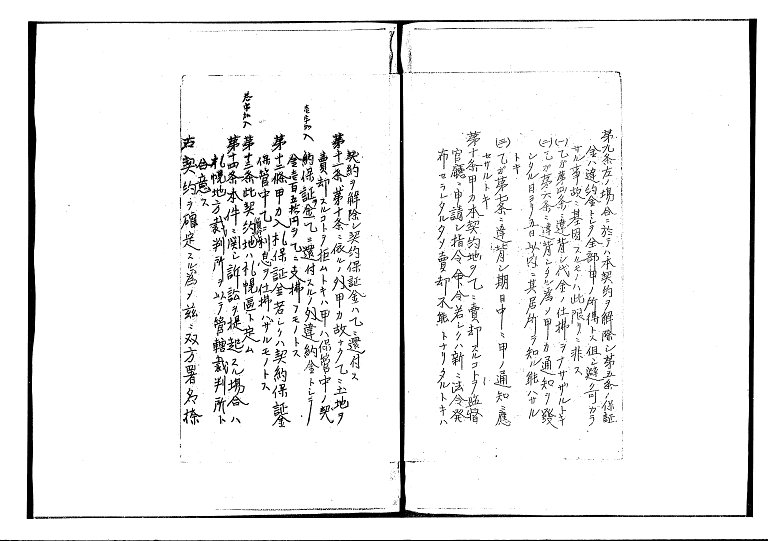 第九条左ノ場合ニ於テハ本契約ヲ解除シ第五条ノ保証
金ハ違約金トシテ全部甲ノ所得トス但シ避ク可カラ
サル事故ニ基因スルモノハ此限リニ非ス
(一)乙ガ第四条ニ違背シ代金ノ仕拂ヲナサザルトキ
(二)乙ガ第六条ニ違背シタル為メ甲カ通知ヲ發
シタル日ヨリ五日以内ニ其居所ヲ知ル能ハサル
トキ
(三)乙ガ第七条ニ違背シ期日中ニ甲ノ通知ニ應
セサルトキ
第十条甲カ本契約地ヲ乙ニ賣却スルコトヲ監督
官廳ニ申請シ指令命令若シクハ新ニ法令發
布セラレタルタメ賣却不能トナリタルトキハ
契約ヲ解除シ契約保証金ハ乙ニ還付ス
第十一条第十条ニ依ルノ外甲カ故ナク乙ニ土地ヲ
賣却スルコトヲ拒ムトキハ甲ハ保管中ノ契
約保証金ヲ乙ニ還付スルノ外違約金トシテ
金壱百五拾円ヲ乙ニ支拂フモノトス
第十二條甲カ入札保証金若シクハ契約保証金
保管中乙ニ利息ヲ仕拂ハサルモノトス
第十三条此契約地ハ札幌區ト定ム
第十四条本件ニ関シ訴訟ヲ提起スル場合ハ
札幌地方裁判所ヲ以テ管轄裁判所ト
合意ス
右契約ヲ確定スル為メ茲ニ双方署名捺